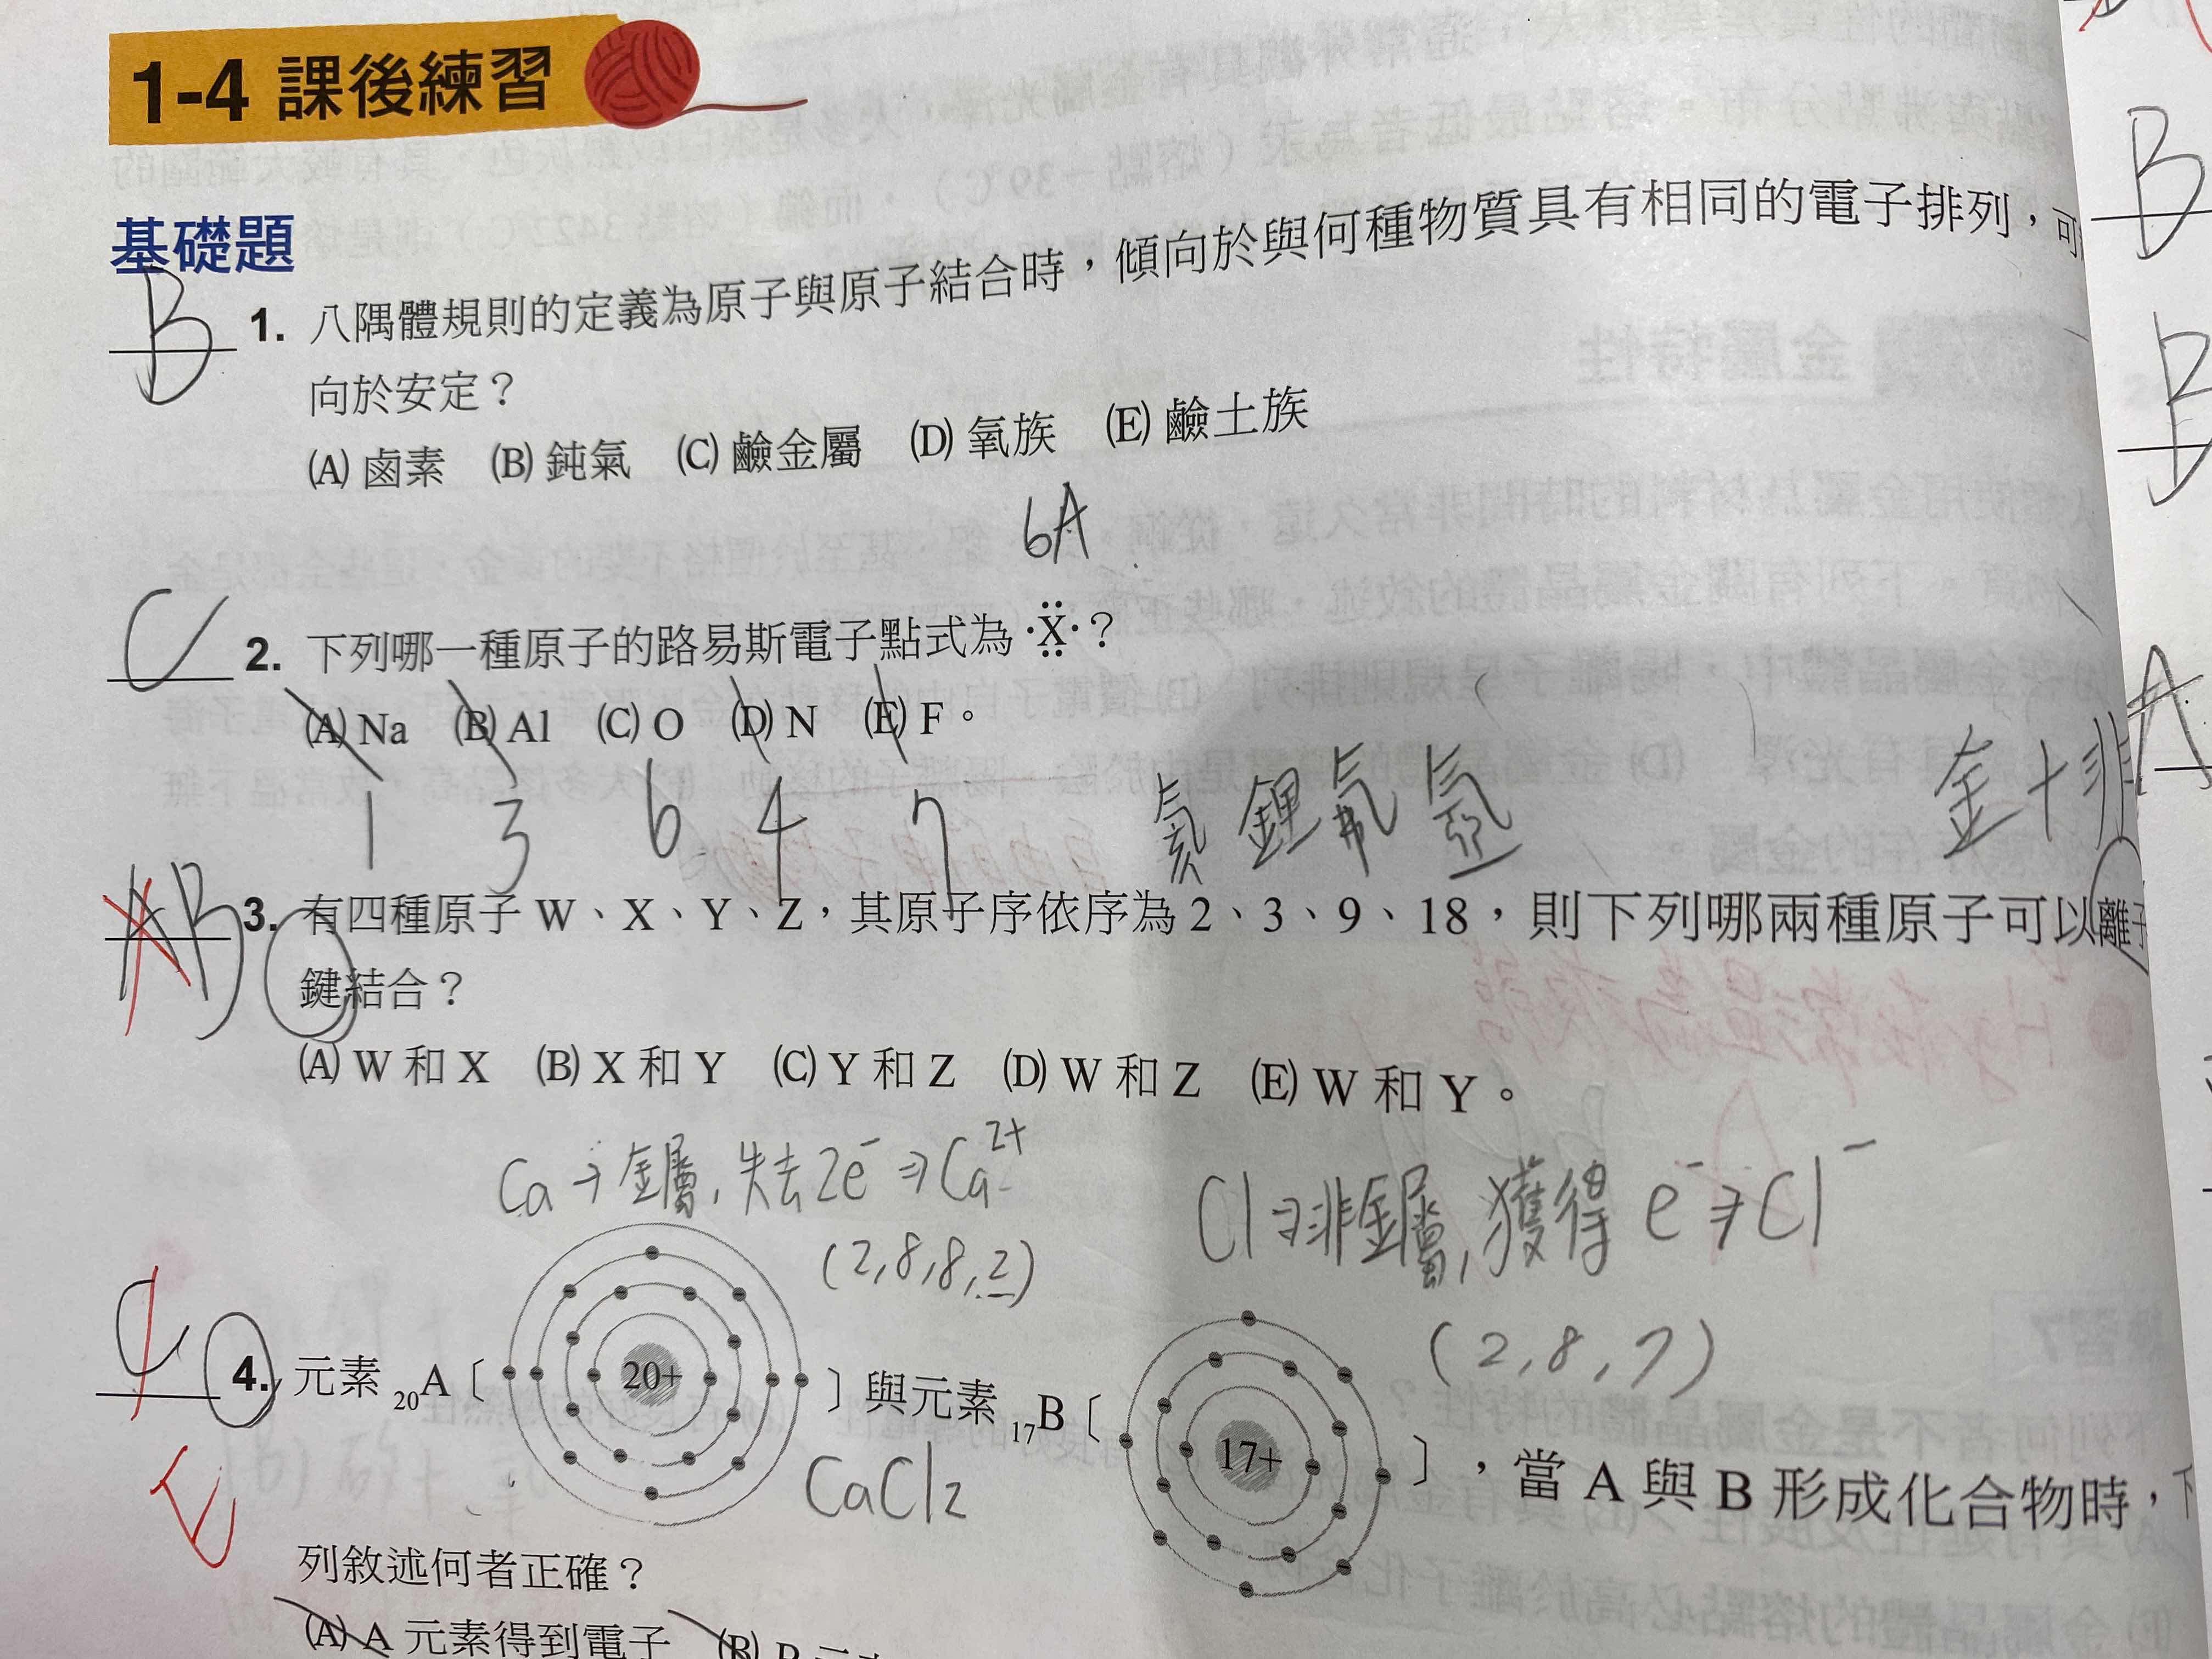 1-4 課後練習
基礎題
B
1. 八隅體規則的定義為原子與原子結合時，傾向於與何種物質具有相同的電子排列，可
向於安定？
(A) 鹵素 (B) 鈍氣 (C) 鹼金屬 (D) 氧族 (E) 鹼土族
6A
C
2. 下列哪一種原子的路易斯電子點式為 ·Ẍ·？
(A) Na (B) Al (C) O (D) N (E) F。
1 3 6 4 7
氦 鋰 氟 氬
金+非
A B
3. 有四種原子 W、X、Y、Z，其原子序依序為 2、3、9、18，則下列哪兩種原子可以離子
鍵結合？
(A) W 和 X (B) X 和 Y (C) Y 和 Z (D) W 和 Z (E) W 和 Y。
Ca → 金屬, 失去 2e⁻ ⇒ Ca²⁺
(2,8,8,2)
Cl ⇒ 非金屬, 獲得 e⁻ ⇒ Cl⁻
(2,8,7)
C
4. 元素 ₂₀A〔 20+ 〕與元素 ₁₇B〔 17+ 〕，當 A 與 B 形成化合物時，下
CaCl₂
E
列敘述何者正確？
(A) A 元素得到電子 (B) B 元素
B
B
A